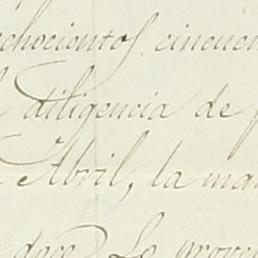 ochocientos cincuen
diligencia de p
Abril, la ma
doce. Lo prove